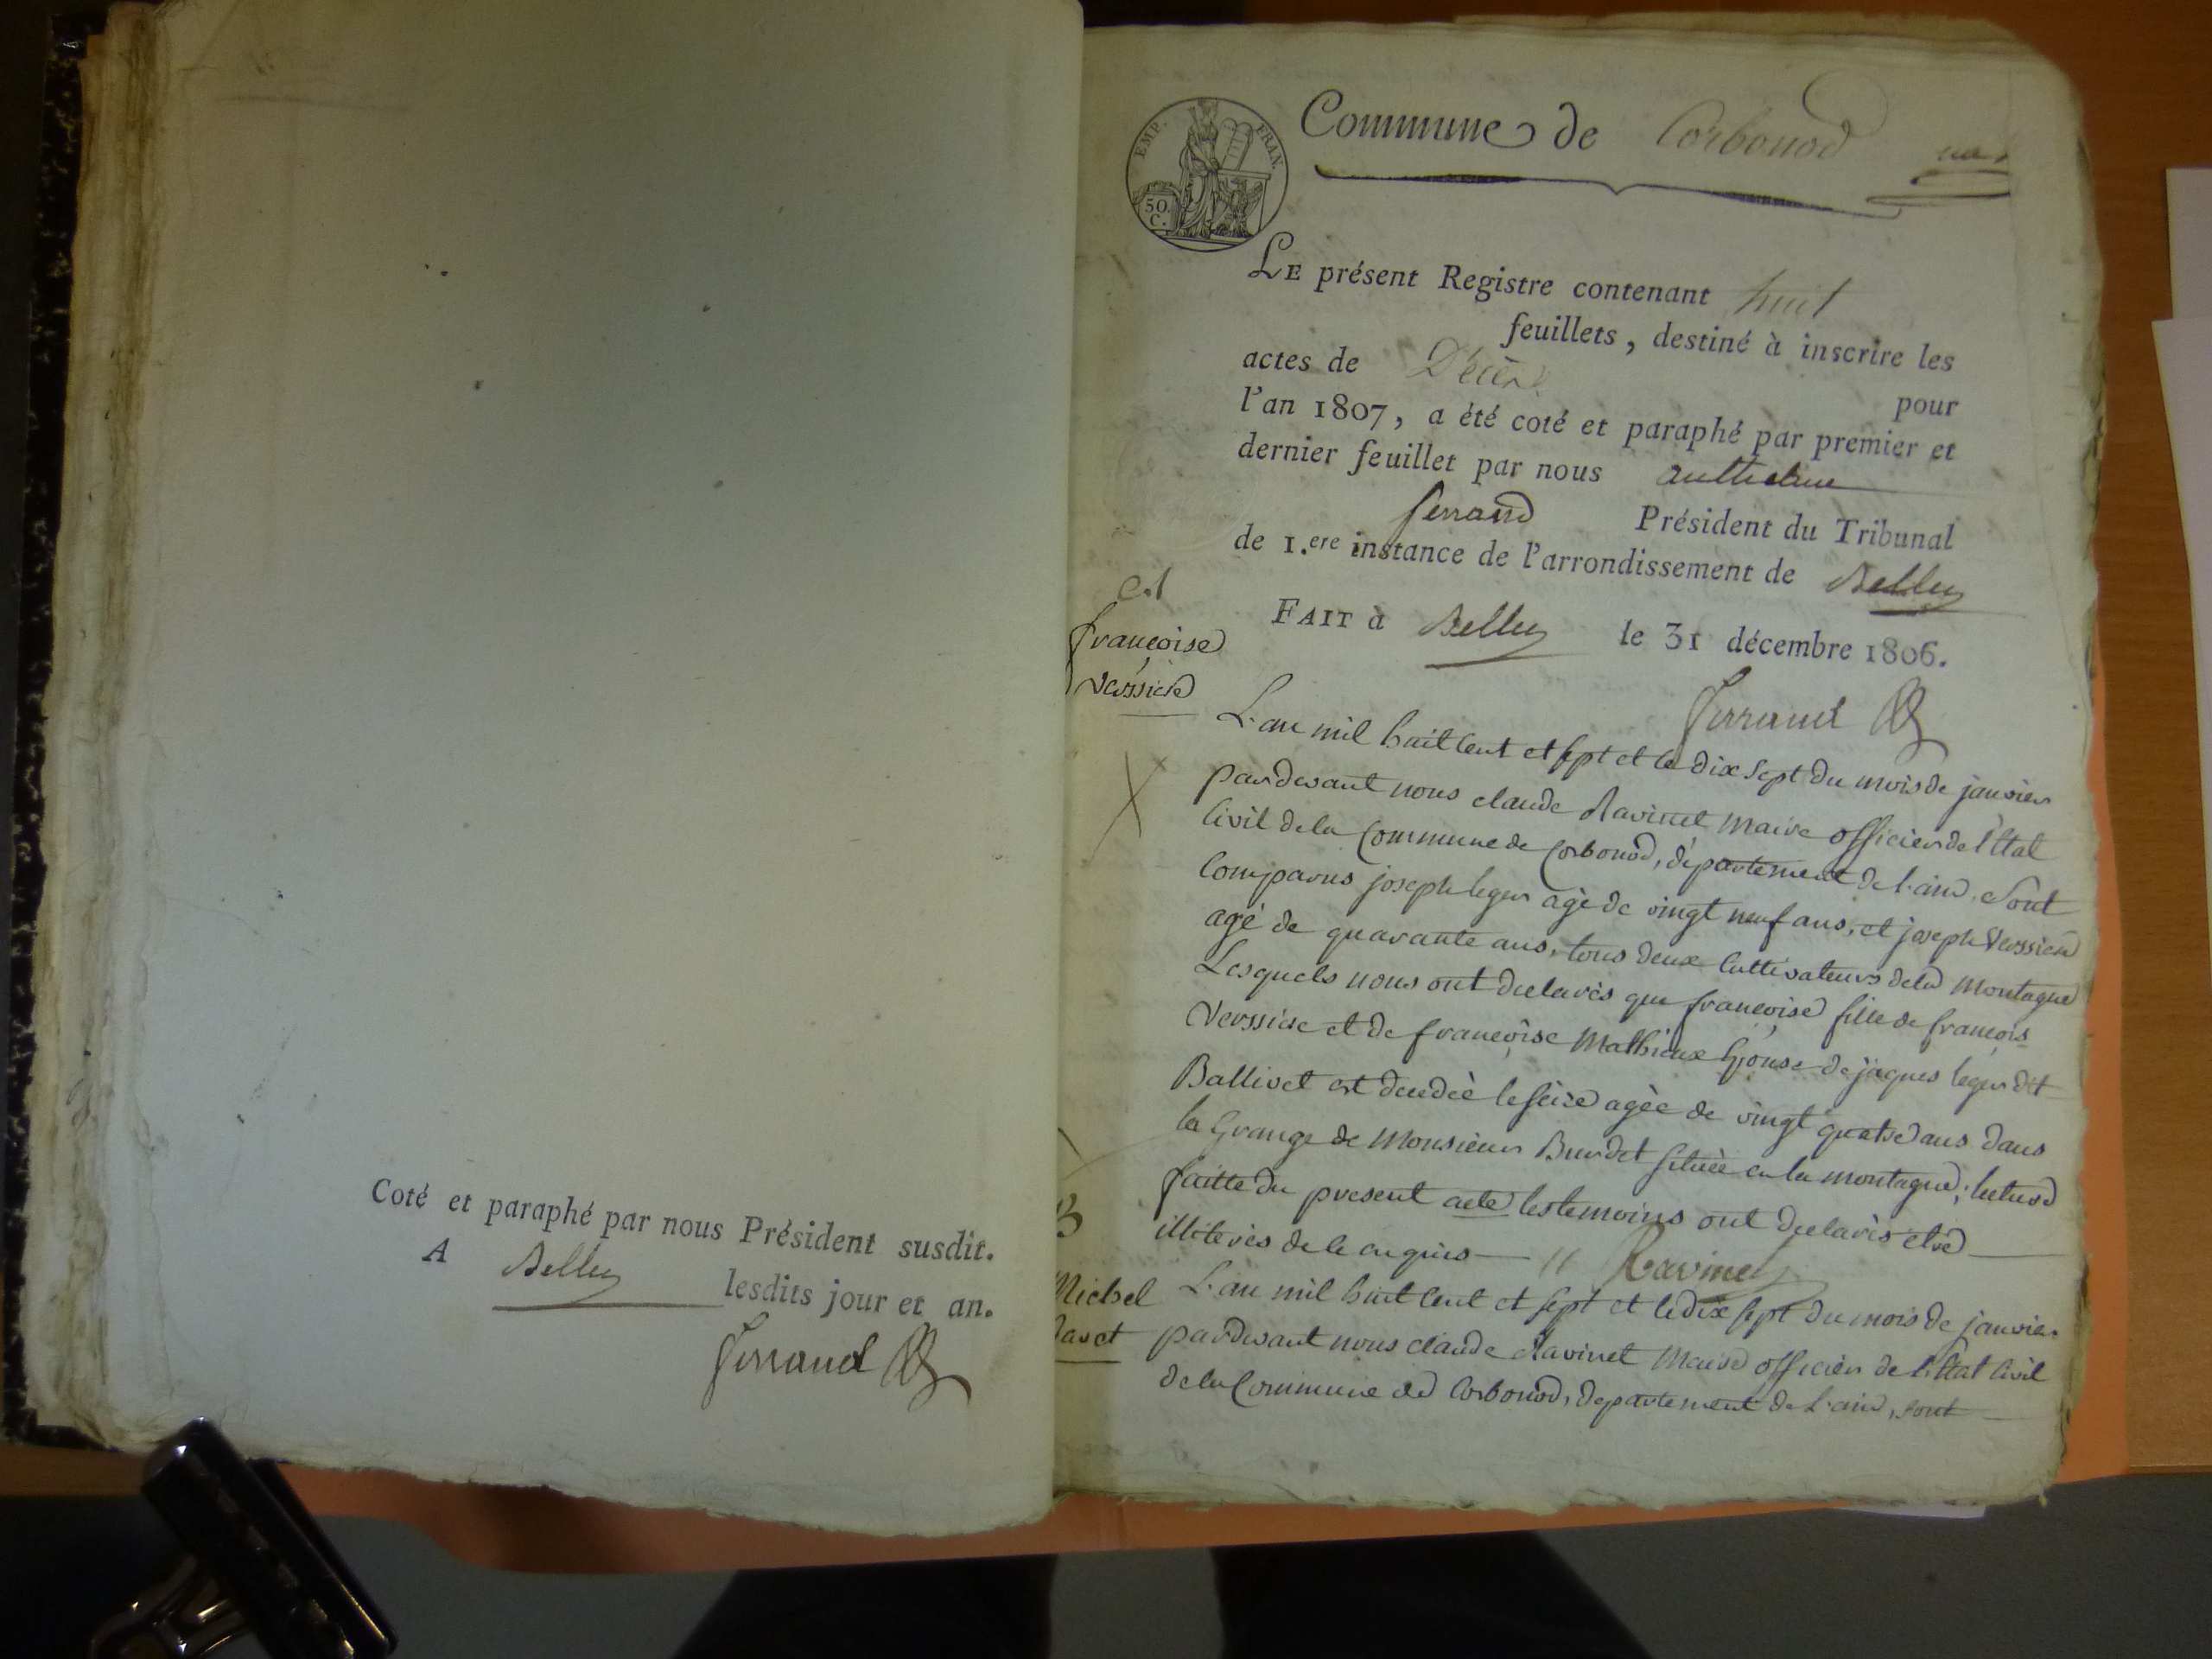 Coté et paraphé par nous Président susdit.
A Belley lesdits jour et an.
Ferrand
EMP. FRAN.
50 C.
Commune de Corbonod
LE présent Registre contenant huit
feuillets, destiné à inscrire les
actes de Décès pour
l'an 1807, a été coté et paraphé par premier et
dernier feuillet par nous anthelme
ferrand Président du Tribunal
de 1.ere instance de l'arrondissement de Belley
FAIT à Belley le 31 décembre 1806.
Ferrand
françoise
Verssiere
L'an mil huit cent et sept et le dix sept du mois de janvier
pardevant nous claude Ravinet Maire officier de l'Etat
Civil de la Commune de Corbonod, département de l'ain, Sont
Comparus joseph leger agé de vingt neuf ans, et joseph Verssiere
agé de quarante ans, tous deux Cultivateurs de la Montagne
Lesquels nous ont declarés que françoise fille de françois
Verssiere et de françoise Mathieux Epouse de jaques leger dit
Ballivet est decedeé le seize ageé de vingt quatre ans dans
la Grange de Monsieur Burdet situeé en la montagne; lecture
faitte du present acte les temoins ont declarés etre
illiterés de ce enquis Ravinet
Michel
L'an mil huit cent et sept et le dix sept du mois de janvier
pardevant nous claude Ravinet Maire officier de l'Etat Civil
de la Commune de Corbonod, departement de l'ain, sont